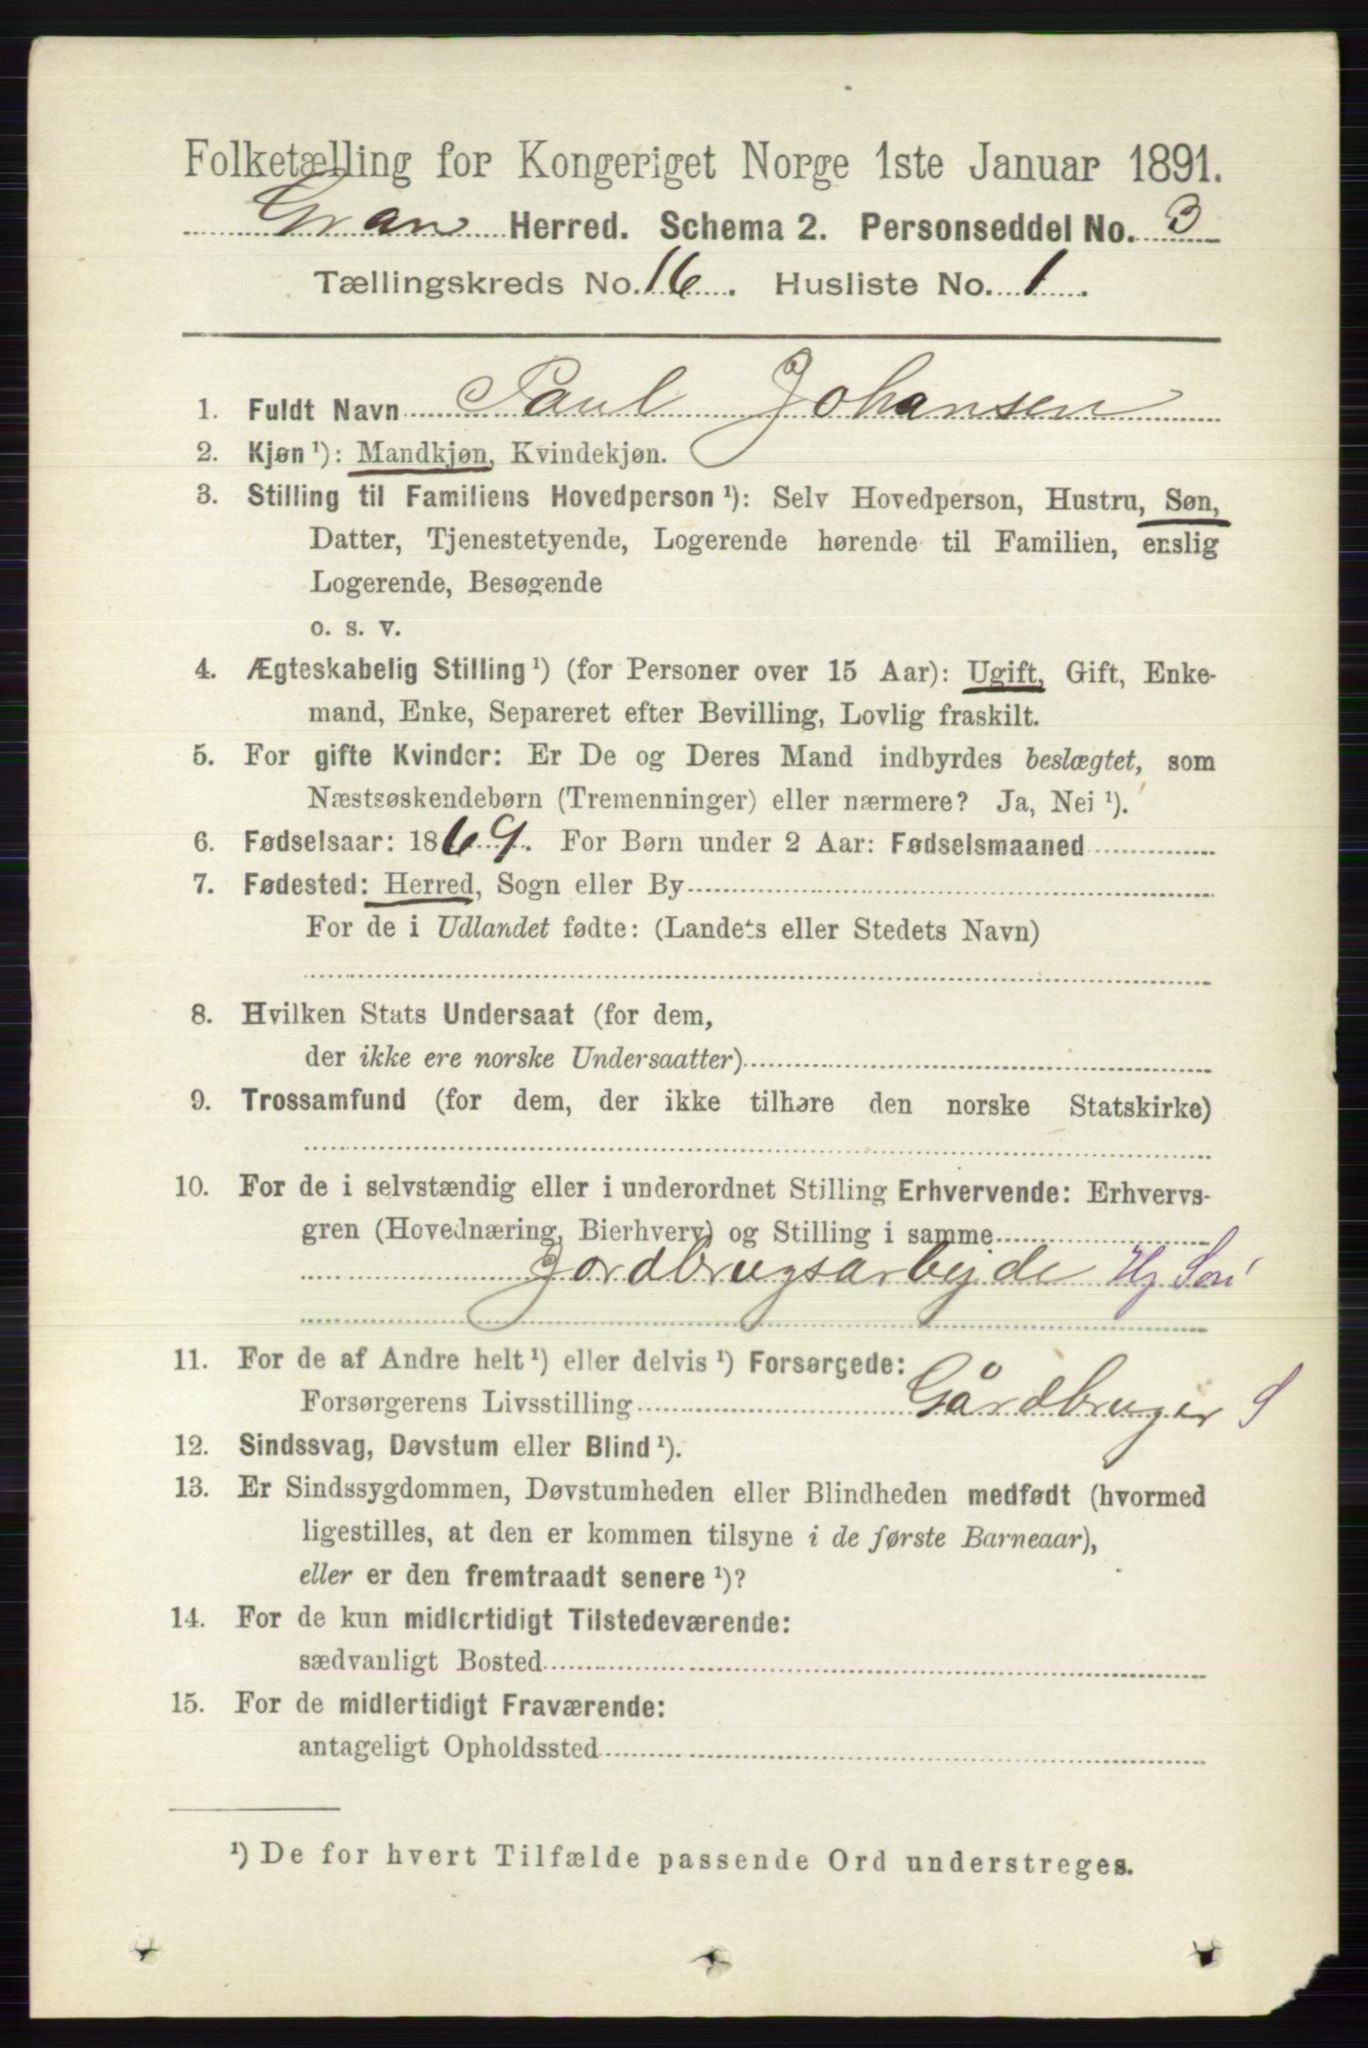 Folketælling for Kongeriget Norge 1ste Januar 1891.
Gran Herred. Schema 2. Personseddel No. 3
Tællingskreds No. 16. Husliste No. 1.
1. Fuldt Navn Paul Johansen
2. Kjøn ¹): Mandkjøn, Kvindekjøn.
3. Stilling til Familiens Hovedperson ¹): Selv Hovedperson, Hustru, Søn,
Datter, Tjenestetyende, Logerende hørende til Familien, enslig
Logerende, Besøgende
o. s. v.
4. Ægteskabelig Stilling ¹) (for Personer over 15 Aar): Ugift, Gift, Enke-
mand, Enke, Separeret efter Bevilling, Lovlig fraskilt.
5. For gifte Kvinder: Er De og Deres Mand indbyrdes beslægtet, som
Næstsøskendebørn (Tremenninger) eller nærmere? Ja, Nei ¹).
6. Fødselsaar: 1869. For Børn under 2 Aar: Fødselsmaaned
7. Fødested: Herred, Sogn eller By
For de i Udlandet fødte: (Landets eller Stedets Navn)
8. Hvilken Stats Undersaat (for dem,
der ikke ere norske Undersaatter)
9. Trossamfund (for dem, der ikke tilhøre den norske Statskirke)
10. For de i selvstændig eller i underordnet Stilling Erhvervende: Erhvervs-
gren (Hovednæring, Bierhverv) og Stilling i samme
Jordbrugsarbejde Hj Søn
11. For de af Andre helt ¹) eller delvis ¹) Forsørgede:
Forsørgerens Livsstilling Gårdbruger S
12. Sindssvag, Døvstum eller Blind ¹).
13. Er Sindssygdommen, Døvstumheden eller Blindheden medfødt (hvormed
ligestilles, at den er kommen tilsyne i de første Barneaar),
eller er den fremtraadt senere ¹)?
14. For de kun midlertidigt Tilstedeværende:
sædvanligt Bosted
15. For de midlertidigt Fraværende:
antageligt Opholdssted
¹) De for hvert Tilfælde passende Ord understreges.